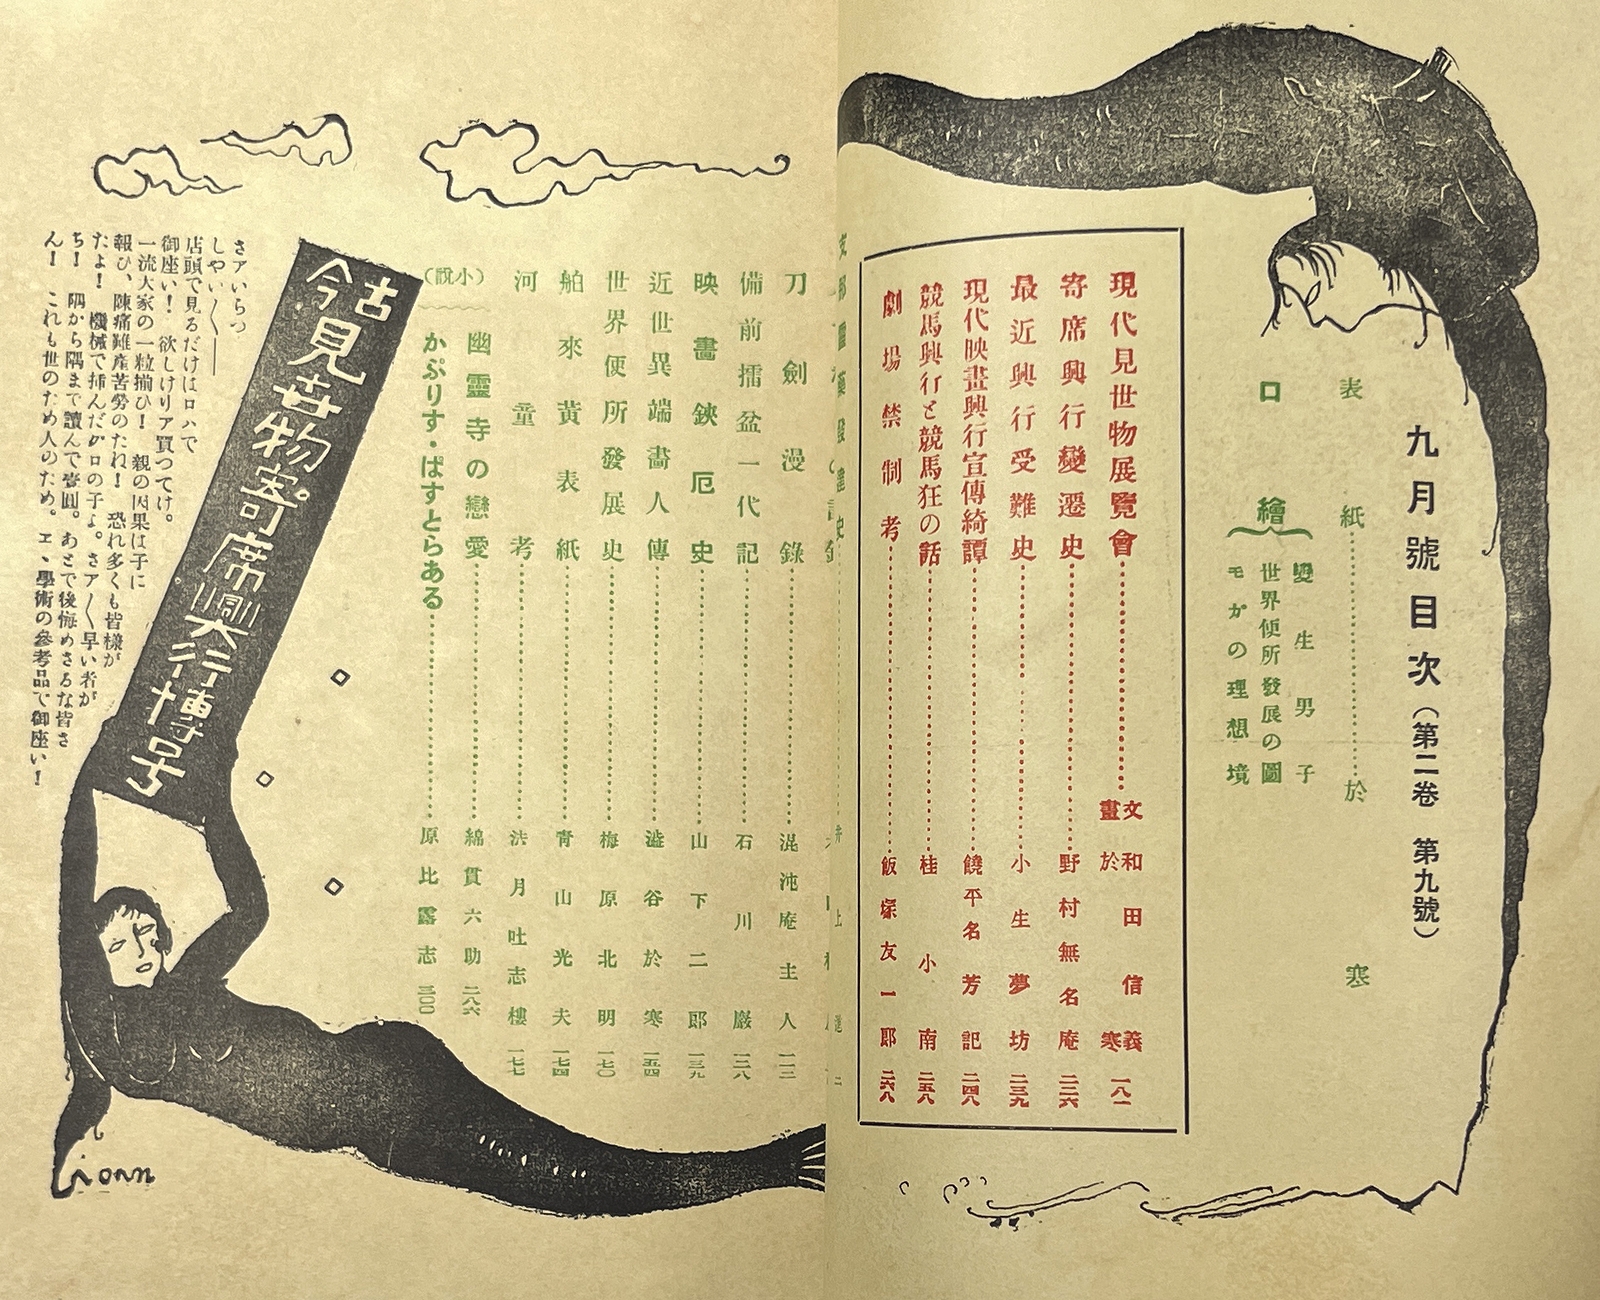 九月號目次（第二卷　第九號）
表紙……於寒
口繪
變生男子
世界便所發展の圖
モガの理想境
現代見世物展覽會……文 和田信義 畫 於寒 一八一
寄席興行變遷史……野村無名庵 二二六
最近興行受難史……小生夢坊 二三九
現代映畫興行宣傳綺譚……饒平名芳記 二四八
競馬興行と競馬狂の話……桂小南 二五八
劇場禁制考……飯塚友一郎 二六八
刀劍漫錄……混沌庵主人 一二二
備前擂盆一代記……石川巖 一二八
映畫鋏厄史……山下二郎 一三九
近世異端畫人傳……澁谷於寒 一五四
世界便所發展史……梅原北明 一七〇
舶來黃表紙……靑山光夫 一七四
河童考……洪月吐志樓 一七七
（小說）
幽靈寺の戀愛……綿貫六助 二八六
かぷりす・ぱすとらある……原比露志 三〇〇
古今見世物寄席劇大行博号
さアいらつ
しやい〱――
店頭で見るだけはロハで
御座い！　欲しけりア買つてけ。
一流大家の一粒揃ひ！　親の因果は子に
報ひ、陳痛難產苦勞のたね！　恐れ多くも皆樣が
たよ！　機械で揷んだがロの子よ。さア〱早い者が
ち！　隅から隅まで讀んで壹圓。あとで後悔めさるな皆さ
ん！　これも世のため人のため。エ、學術の參考品で御座い！